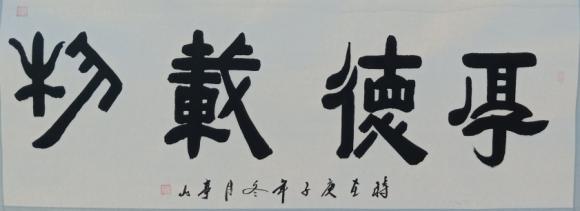 厚德載物
時在庚子年冬月